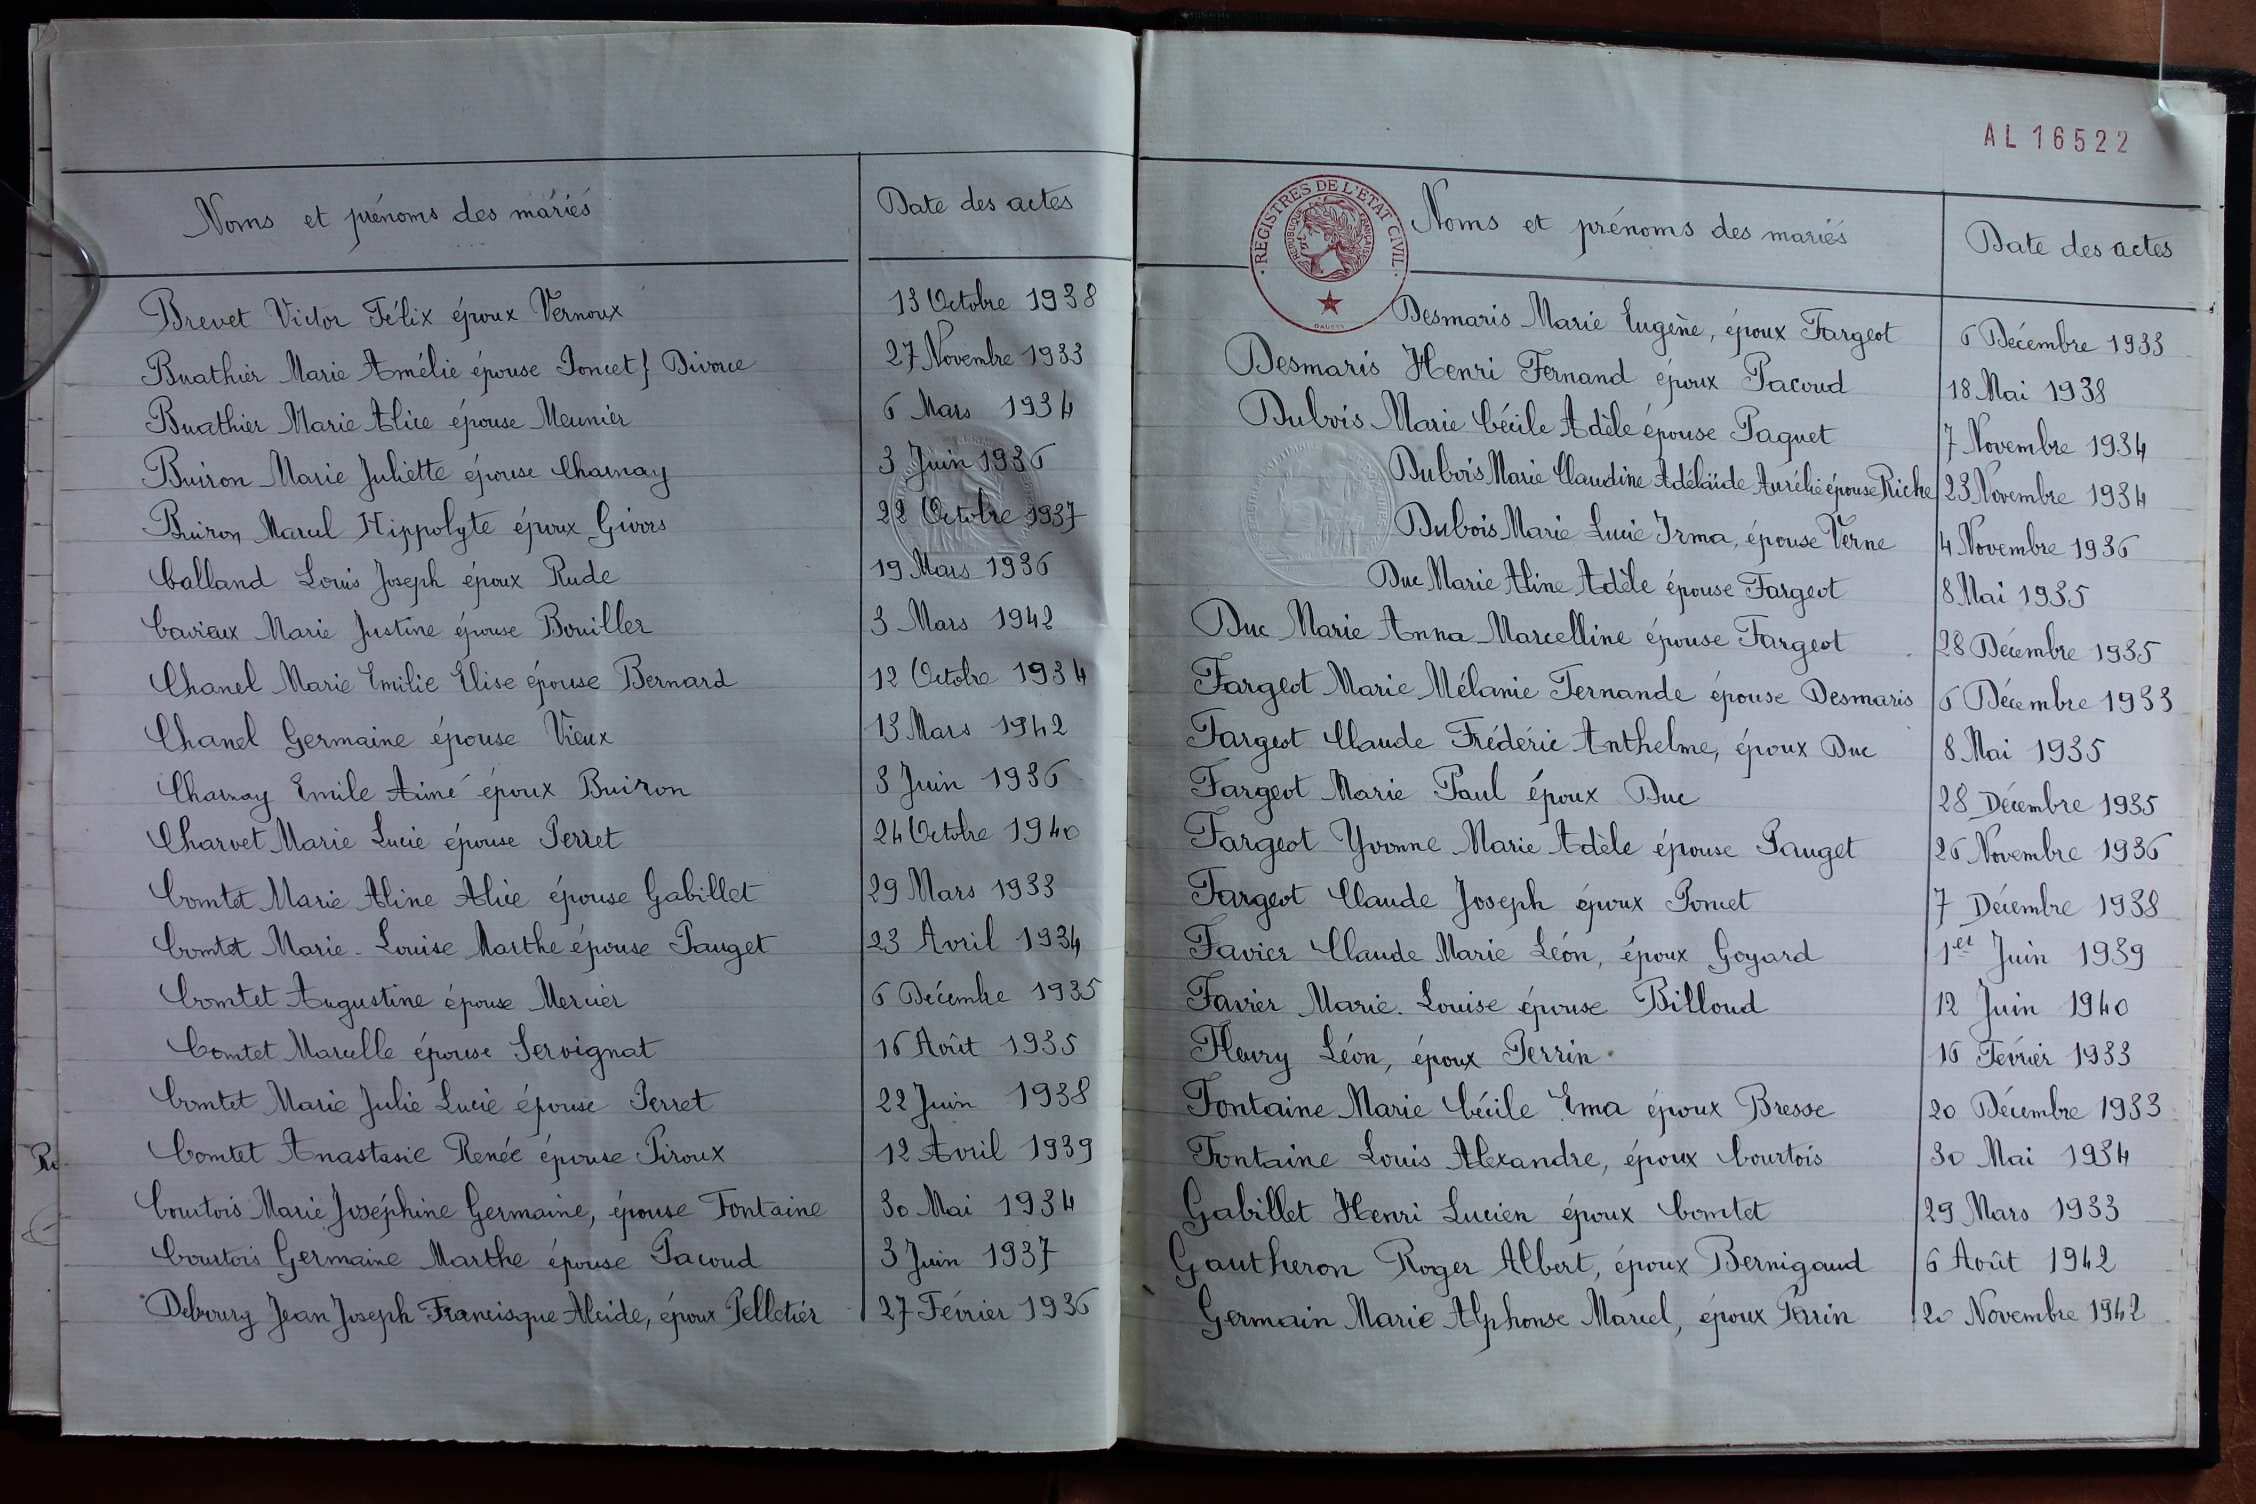 Noms et prénoms des mariés
Date des actes
Brevet Victor Félix époux Vernoux 13 Octobre 1938
Buathier Marie Amélie épouse Poncet } Divorce 27 Novembre 1933
Buathier Marie Alice épouse Meunier 6 Mars 1934
Buiron Marie Juliette épouse Charnay 3 Juin 1936
Buiron Marcel Hippolyte époux Givors 22 Octobre 1937
Calland Louis Joseph époux Rude 19 Mars 1936
Cavieux Marie Justine épouse Bouiller 3 Mars 1942
Chanel Marie Emilie Elise épouse Bernard 12 Octobre 1934
Chanel Germaine épouse Vieux 13 Mars 1942
Charnay Emile Aimé époux Buiron 3 Juin 1936
Charvet Marie Lucie épouse Perret 24 Octobre 1940
Comtet Marie Aline Alice épouse Gabillet 29 Mars 1933
Comtet Marie-Louise Marthe épouse Pauget 23 Avril 1934
Comtet Augustine épouse Mercier 6 Décembre 1935
Comtet Marcelle épouse Servignat 16 Août 1935
Comtet Marie Julie Lucie épouse Perret 22 Juin 1938
Comtet Anastasie Renée épouse Piroux 12 Avril 1939
Courtois Marie Joséphine Germaine, épouse Fontaine 30 Mai 1934
Courtois Germaine Marthe épouse Pacoud 3 Juin 1937
Debourg Jean Joseph Francisque Alcide, époux Pelletier 27 Février 1936
AL 16522
REGISTRES DE L'ETAT CIVIL
REPUBLIQUE FRANÇAISE
Noms et prénoms des mariés
Date des actes
Desmaris Marie Eugène, époux Fargeot 6 Décembre 1933
Desmaris Henri Fernand époux Pacoud 18 Mai 1938
Dubois Marie Cécile Adèle épouse Paquet 7 Novembre 1934
Dubois Marie Claudine Adélaïde Aurélie épouse Riche 23 Novembre 1934
Dubois Marie Lucie Irma, épouse Verne 4 Novembre 1936
Duc Marie Aline Adèle épouse Fargeot 8 Mai 1935
Duc Marie Anna Marcelline épouse Fargeot 28 Décembre 1935
Fargeot Marie Mélanie Fernande épouse Desmaris 6 Décembre 1933
Fargeot Claude Frédéric Anthelme, époux Duc 8 Mai 1935
Fargeot Marie Paul époux Duc 28 Décembre 1935
Fargeot Yvonne Marie Adèle épouse Pauget 26 Novembre 1936
Fargeot Claude Joseph époux Poncet 7 Décembre 1938
Favier Claude Marie Léon, époux Goyard 1er Juin 1939
Favier Marie-Louise épouse Billoud 12 Juin 1940
Fleury Léon, époux Perrin 16 Février 1933
Fontaine Marie Cécile Ema époux Bresse 20 Décembre 1933
Fontaine Louis Alexandre, époux Courtois 30 Mai 1934
Gabillet Henri Lucien époux Comtet 29 Mars 1933
Gautheron Roger Albert, époux Bernigaud 6 Août 1942
Germain Marie Alphonse Marcel, époux Perrin 20 Novembre 1942